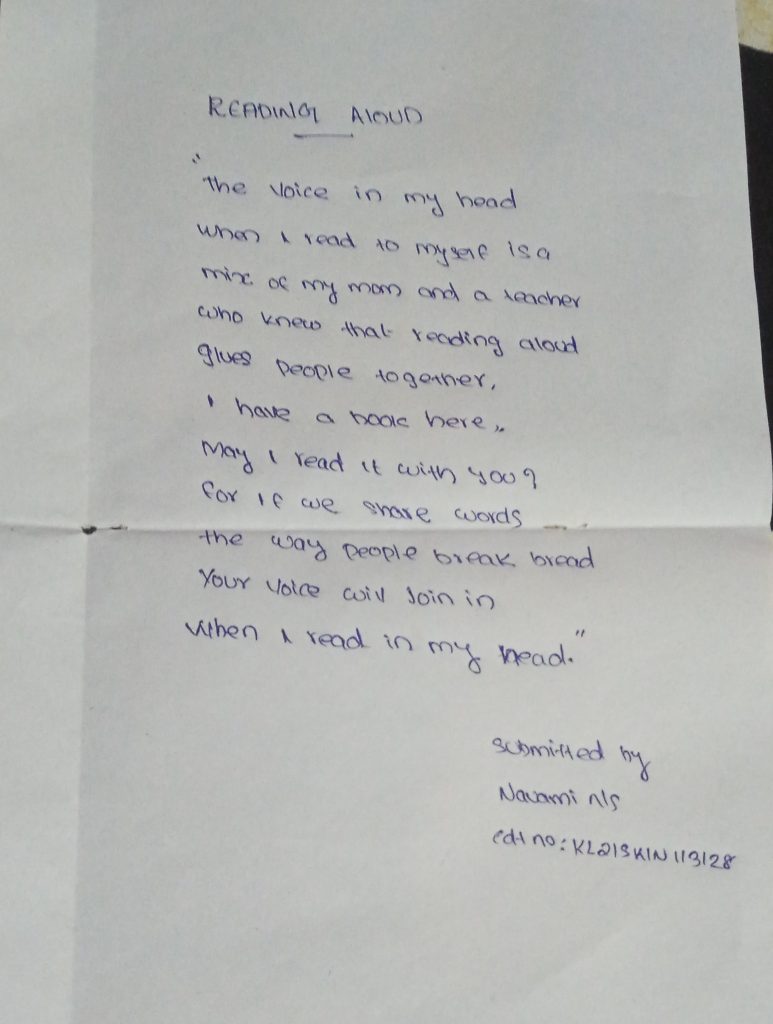 READING AlOUD
"The voice in my head
when I read to myself is a
mix of my mom and a teacher
who knew that reading aloud
glues people together,
I have a book here,,
May I read it with you?
for if we share words
the way people break bread
Your voice will Join in
When I read in my head."
submitted by
Navami n/s
cdt no: KL21SWN113128